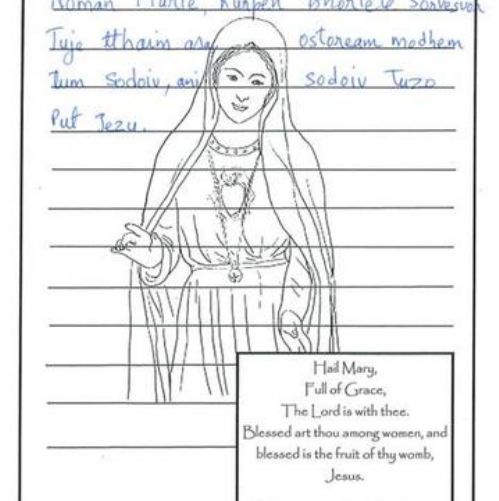 Noman Marie, Kurpen Bhorlele Sorvespor
Tuje tthaim asa ostoream modhem
Tum Sodoiv, ani sodoiv Tuzo
Put Jezu.
Hail Mary,
Full of Grace,
The Lord is with thee.
Blessed art thou among women, and
blessed is the fruit of thy womb,
Jesus.